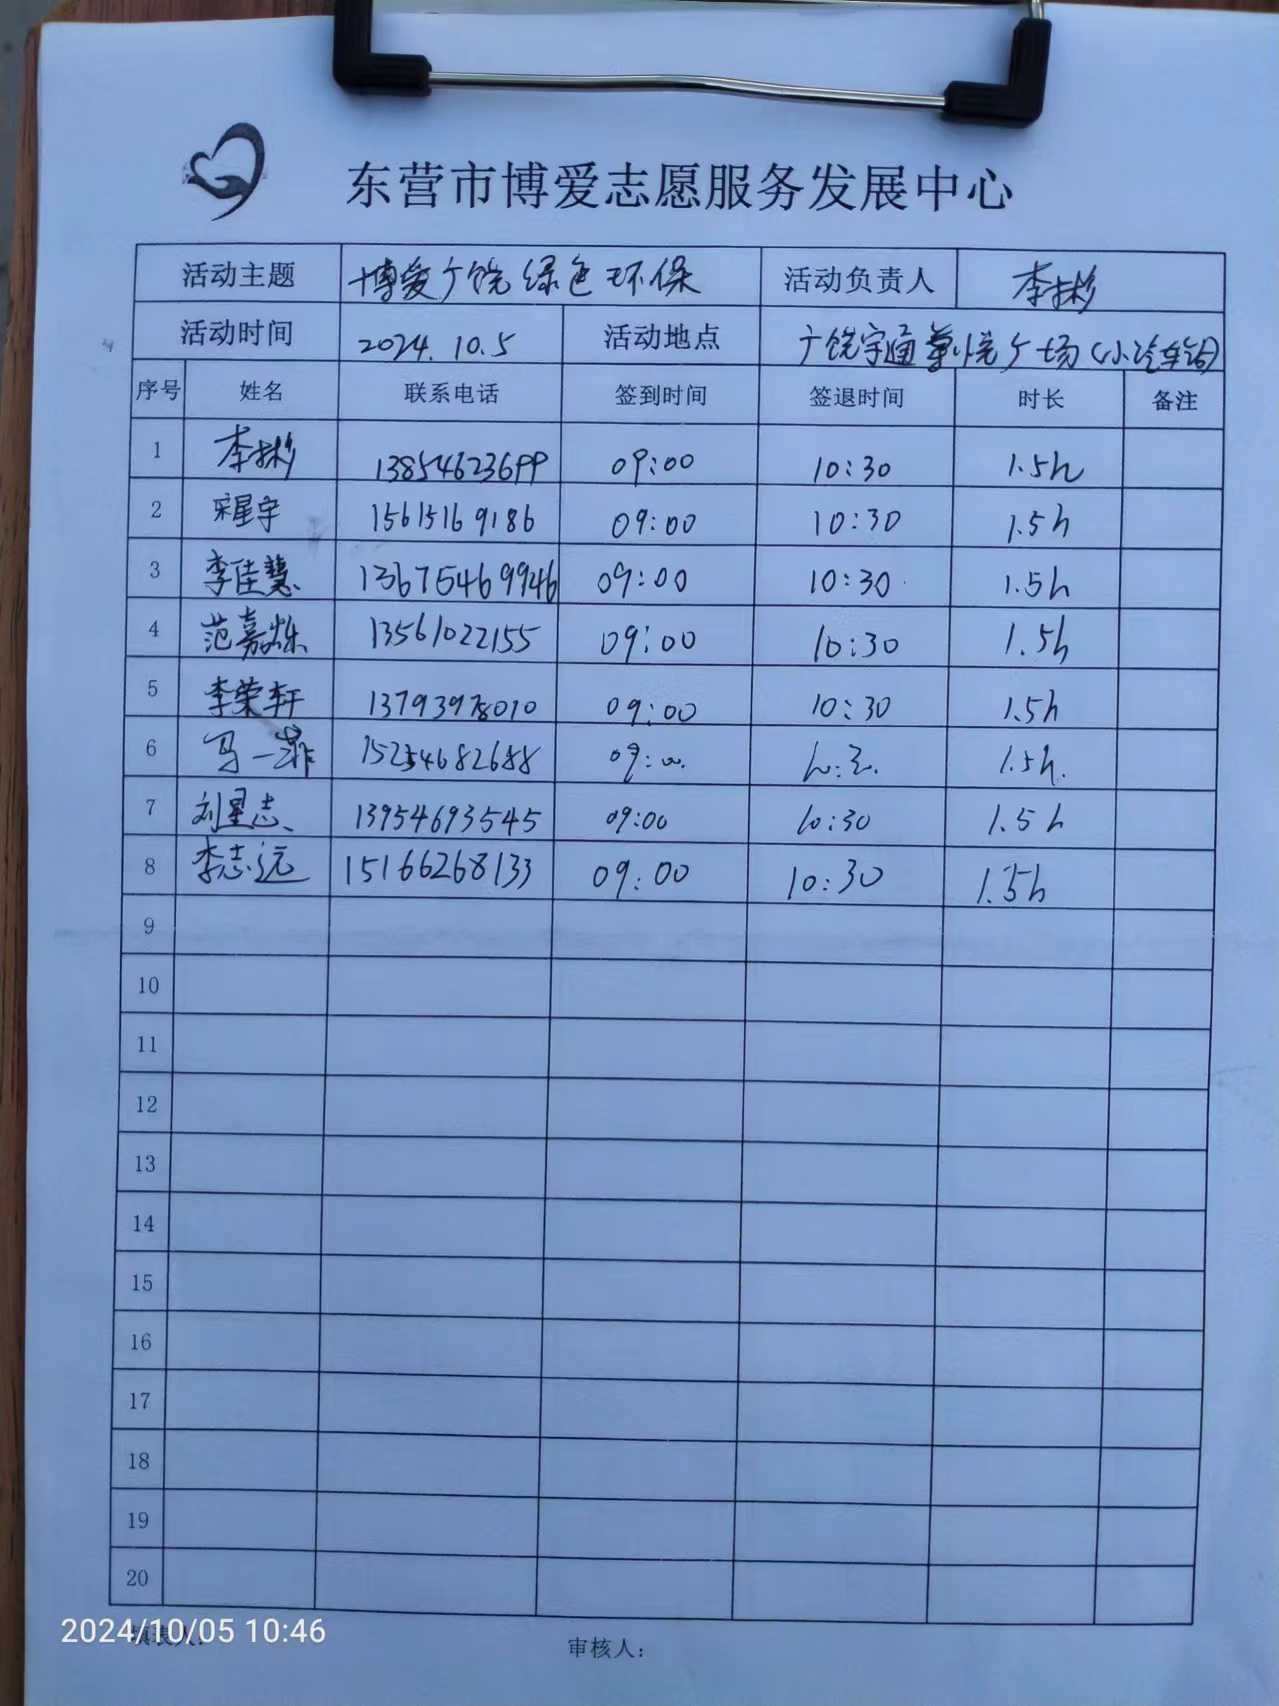 东营市博爱志愿服务发展中心
活动主题 博爱广饶绿色环保 活动负责人 李彬
活动时间 2024.10.5 活动地点 广饶宇通 广场(小汽车站)
序号 姓名 联系电话 签到时间 签退时间 时长 备注
1 李彬 13854623699 09:00 10:30 1.5h
2 宋星宇 15615169186 09:00 10:30 1.5h
3 李佳慧 13675469946 09:00 10:30 1.5h
4 范嘉烁 13561022155 09:00 10:30 1.5h
5 李荣轩 13793978010 09:00 10:30 1.5h
6 马一菲 15254682688 09:00 1.5h.
7 刘星志 13954693545 09:00 10:30 1.5h
8 李志远 15166268133 09:00 10:30 1.5h
9
10
11
12
13
14
15
16
17
18
19
20
填表人: 审核人:
2024/10/05 10:46